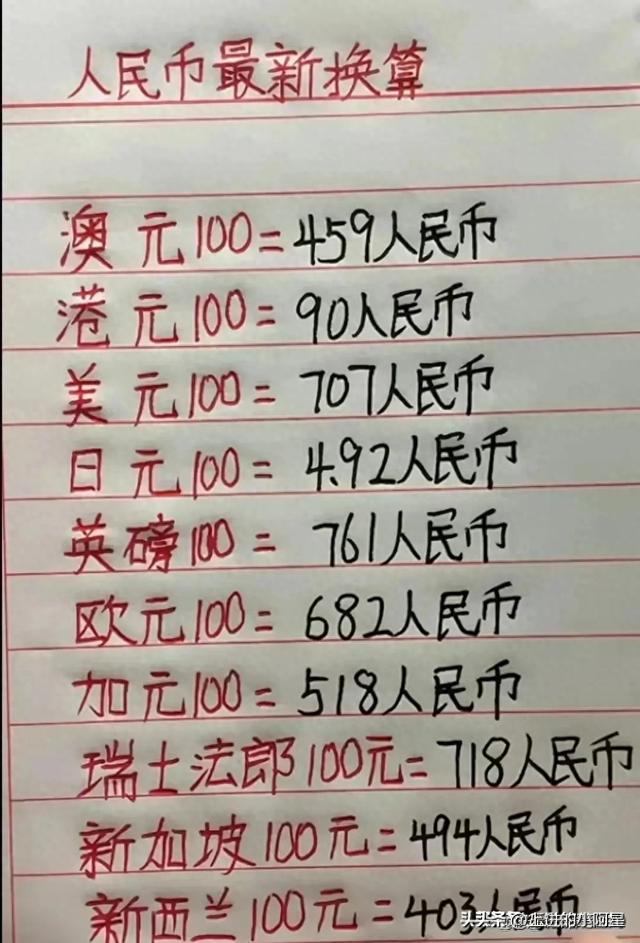 人民币最新换算
澳元100=459人民币
港元100=90人民币
美元100=707人民币
日元100=4.92人民币
英磅100=761人民币
欧元100=682人民币
加元100=518人民币
瑞士法郎100元=718人民币
新加坡100元=494人民币
新西兰100元=403人民币
头条@上进的小阿星